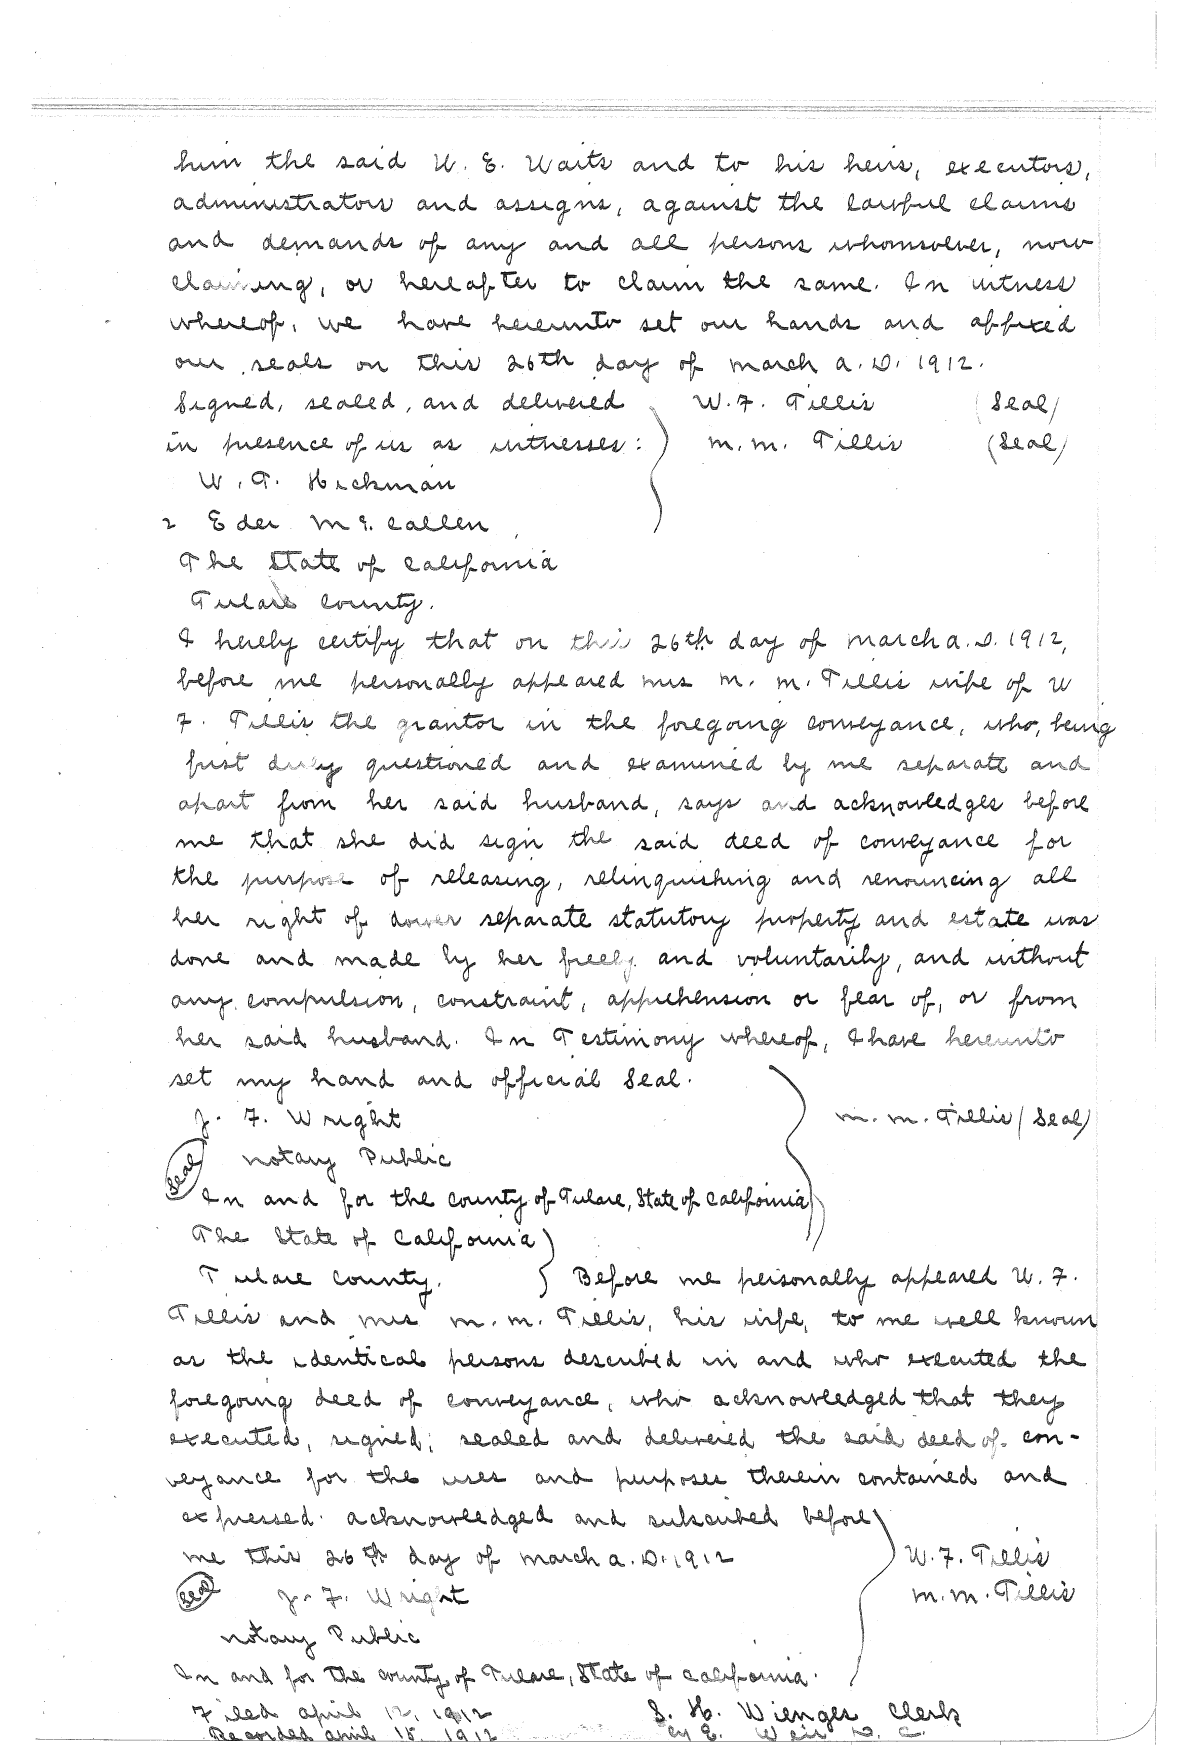 him the said W. E. Waits and to his heirs, executors,
administrators and assigns, against the lawful claims
and demands of any and all persons whomsoever, now
claiming, or hereafter to claim the same. In witness
whereof, we have hereunto set our hands and affixed
our seals on this 26th day of March A. D. 1912.
Signed, sealed, and delivered W. F. Tillis (Seal)
in presence of us as witnesses: M. M. Tillis (Seal)
W. T. Hickman
2 Eder McCallen
The State of California
Tulare County.
I hereby certify that on this 26th day of March A. D. 1912,
before me personally appeared Mrs M. M. Tillis wife of W
F. Tillis the grantor in the foregoing conveyance, who, being
first duly questioned and examined by me separate and
apart from her said husband, says and acknowledges before
me that she did sign the said deed of conveyance for
the purpose of releasing, relinquishing and renouncing all
her right of dower separate statutory property and estate was
done and made by her freely and voluntarily, and without
any compulsion, constraint, apprehension or fear of, or from
her said husband. In Testimony whereof, I have hereunto
set my hand and official Seal.
J. F. Wright M. M. Tillis (Seal)
Seal Notary Public
In and for the County of Tulare, State of California
The State of California
Tulare County. Before me personally appeared W. F.
Tillis and Mrs M. M. Tillis, his wife, to me well known
as the identical persons described in and who executed the
foregoing deed of conveyance, who acknowledged that they
executed, signed, sealed and delivered the said deed of con-
veyance for the uses and purposes therein contained and
expressed. Acknowledged and subscribed before
me this 26th day of March A. D. 1912 W. F. Tillis
Seal J. F. Wright M. M. Tillis
Notary Public
In and for the County of Tulare, State of California.
Filed April 12, 1912 S. H. Wienges Clerk
Recorded April 15, 1912 by E. Weir D. C.